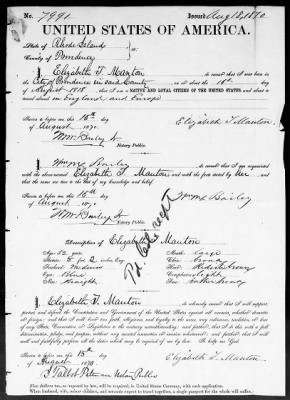 No. 7991. Issued Aug 18, 1870
UNITED STATES OF AMERICA.
State of Rhode Island
County of Providence
I, Elizabeth T. Manton, do swear that I was born in the
City of Providence in said County on or about the 16th day
of August 1818, that I am a NATIVE AND LOYAL CITIZEN OF THE UNITED STATES, and about to
travel abroad in England and Europe
Sworn to before me this 15th day
of August 1870.
Elizabeth T. Manton
Wm M. Bailey Jr
Notary Public.
I, Wm M Bailey, do swear that I am acquainted
with the above-named Elizabeth T. Manton, and with the facts stated by her and
that the same are true to the best of my knowledge and belief.
Sworn to before me this 15th day
of August 1870.
Wm M Bailey
Wm M. Bailey Jr
Notary Public.
Description of Elizabeth T. Manton
Age: 52 years
Stature: 5 ft 2
Forehead: Medium
Eyes: Blue
Nose: Straight
Mouth: large
Chin: broad
Hair:
Complexion: light
Face:
I, Elizabeth T. Manton do solemnly swear that I will support,
protect and defend the Constitution and Government of the United States against all enemies, whether domestic
or foreign; and that I will bear true faith, allegiance and loyalty to the same, any ordinance, resolution, or law
of any State, Convention, or Legislature to the contrary notwithstanding; and further, that I do this with a full
determination, pledge, and purpose, without any mental reservation or evasion whatsoever; and further, that I will
well and faithfully perform all the duties which may be required of me by law. So help me God.
Sworn to before me this 15th
day of August 1870
Elizabeth T. Manton
Notary Public
Five dollars tax, as imposed by law, will be required in United States Currency, with each application.
When husband, wife, minor children, and servants expect to travel together, a single passport for the whole will suffice.